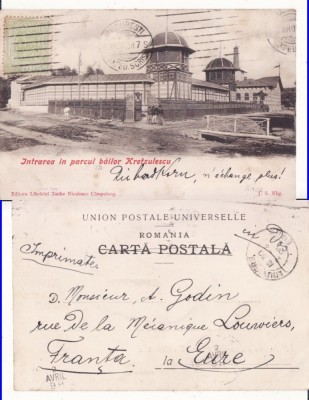 BUCURESTI
Intrarea în parcul băilor Kretzulescu
n'échange plus!
Editura Librăriei Tache Nicolescu Câmpulung.
UNION POSTALE UNIVERSELLE
ROMANIA
CARTĂ POSTALĂ
Imprimate
D. Monsieur, A. Godin
rue De la Mécanique Louviers,
Franța la Eure
AVRIL